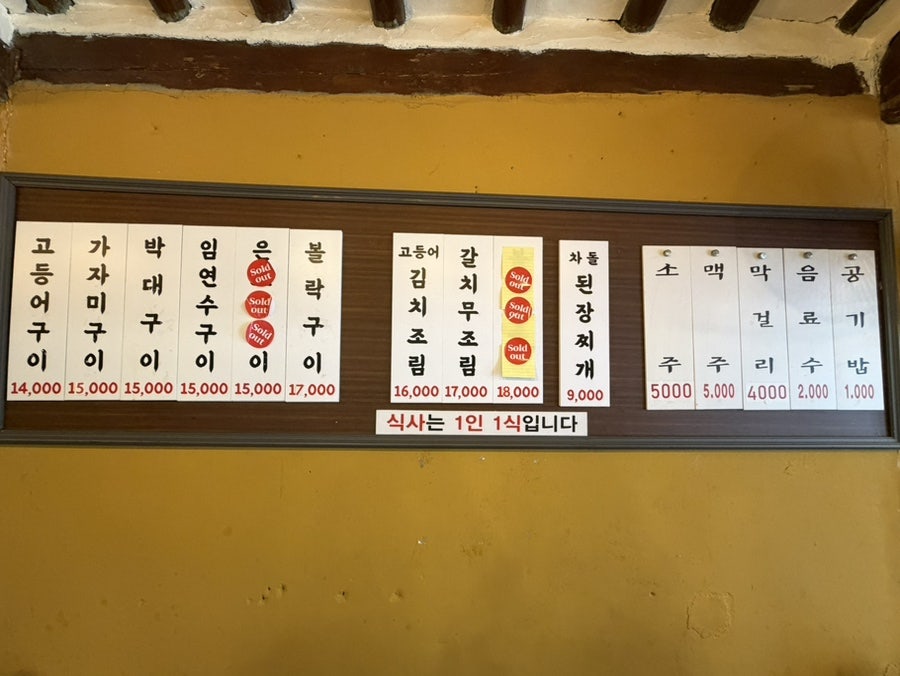 고등어구이
14,000
가자미구이
15,000
박대구이
15,000
임연수구이
15,000
은
Sold out
Sold out
Sold out
이
15,000
볼락구이
17,000
고등어김치조림
16,000
갈치무조림
17,000
Sold out
Sold out
Sold out
18,000
차돌된장찌개
9,000
소주
5000
맥주
5.000
막걸리
4000
음료수
2.000
공기밥
1.000
식사는 1인 1식입니다